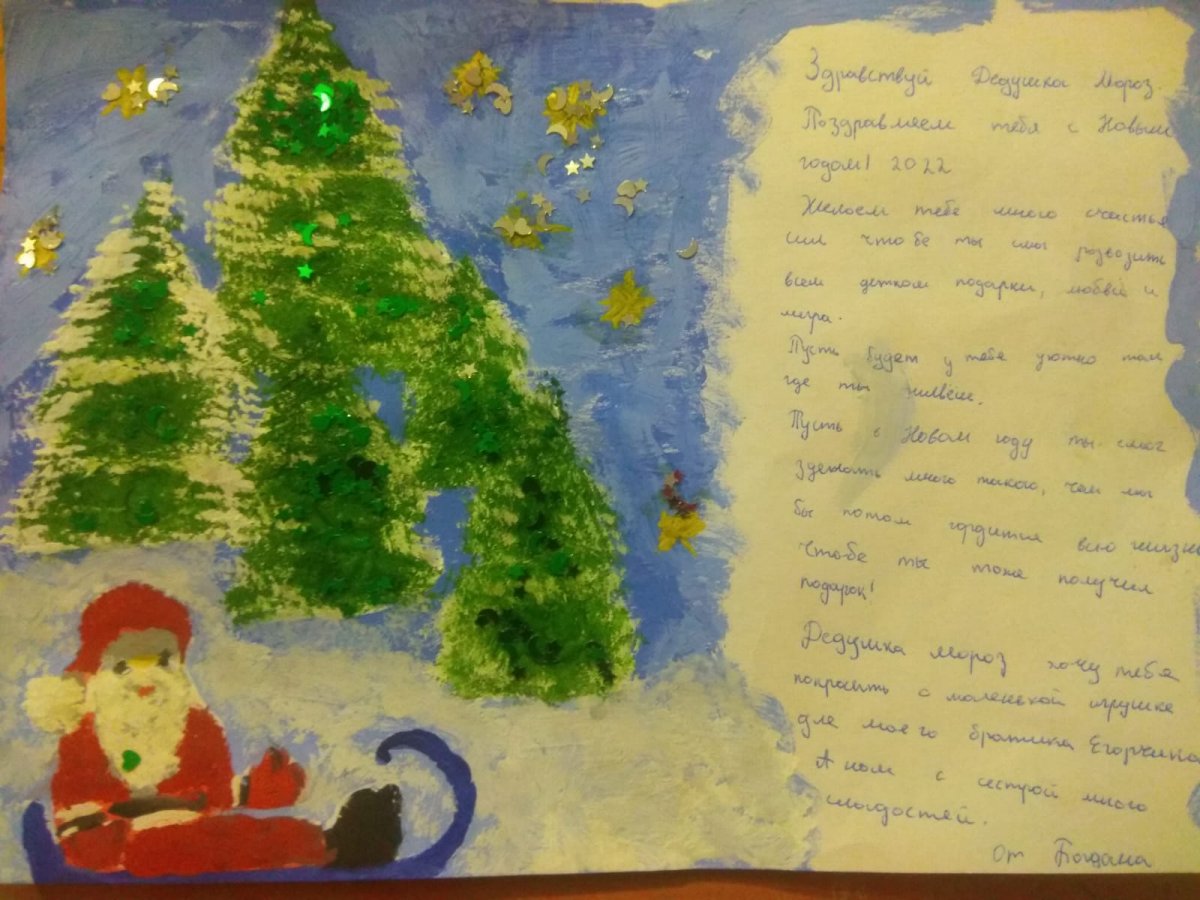 Здравствуй Дедушка Мороз.
Поздравляем тебя с Новым
годом! 2022
Желоем тебе много счастья
сил чтобе ты смог развозить
всем деткам подарки, любви и
мира.
Пусть будет у тебя уютно там
где ты живёш.
Пусть в Новом году ты смог
зделать много такого, чем мы
бы потом гордится всю жизнь
Чтобе ты тоже получил
подарок!
Дедушка Мороз хочу тебя
попросить о маленькой игрушке
для моего братика Егорчика
А нам с сестрой много
сладостей.
От Богдана